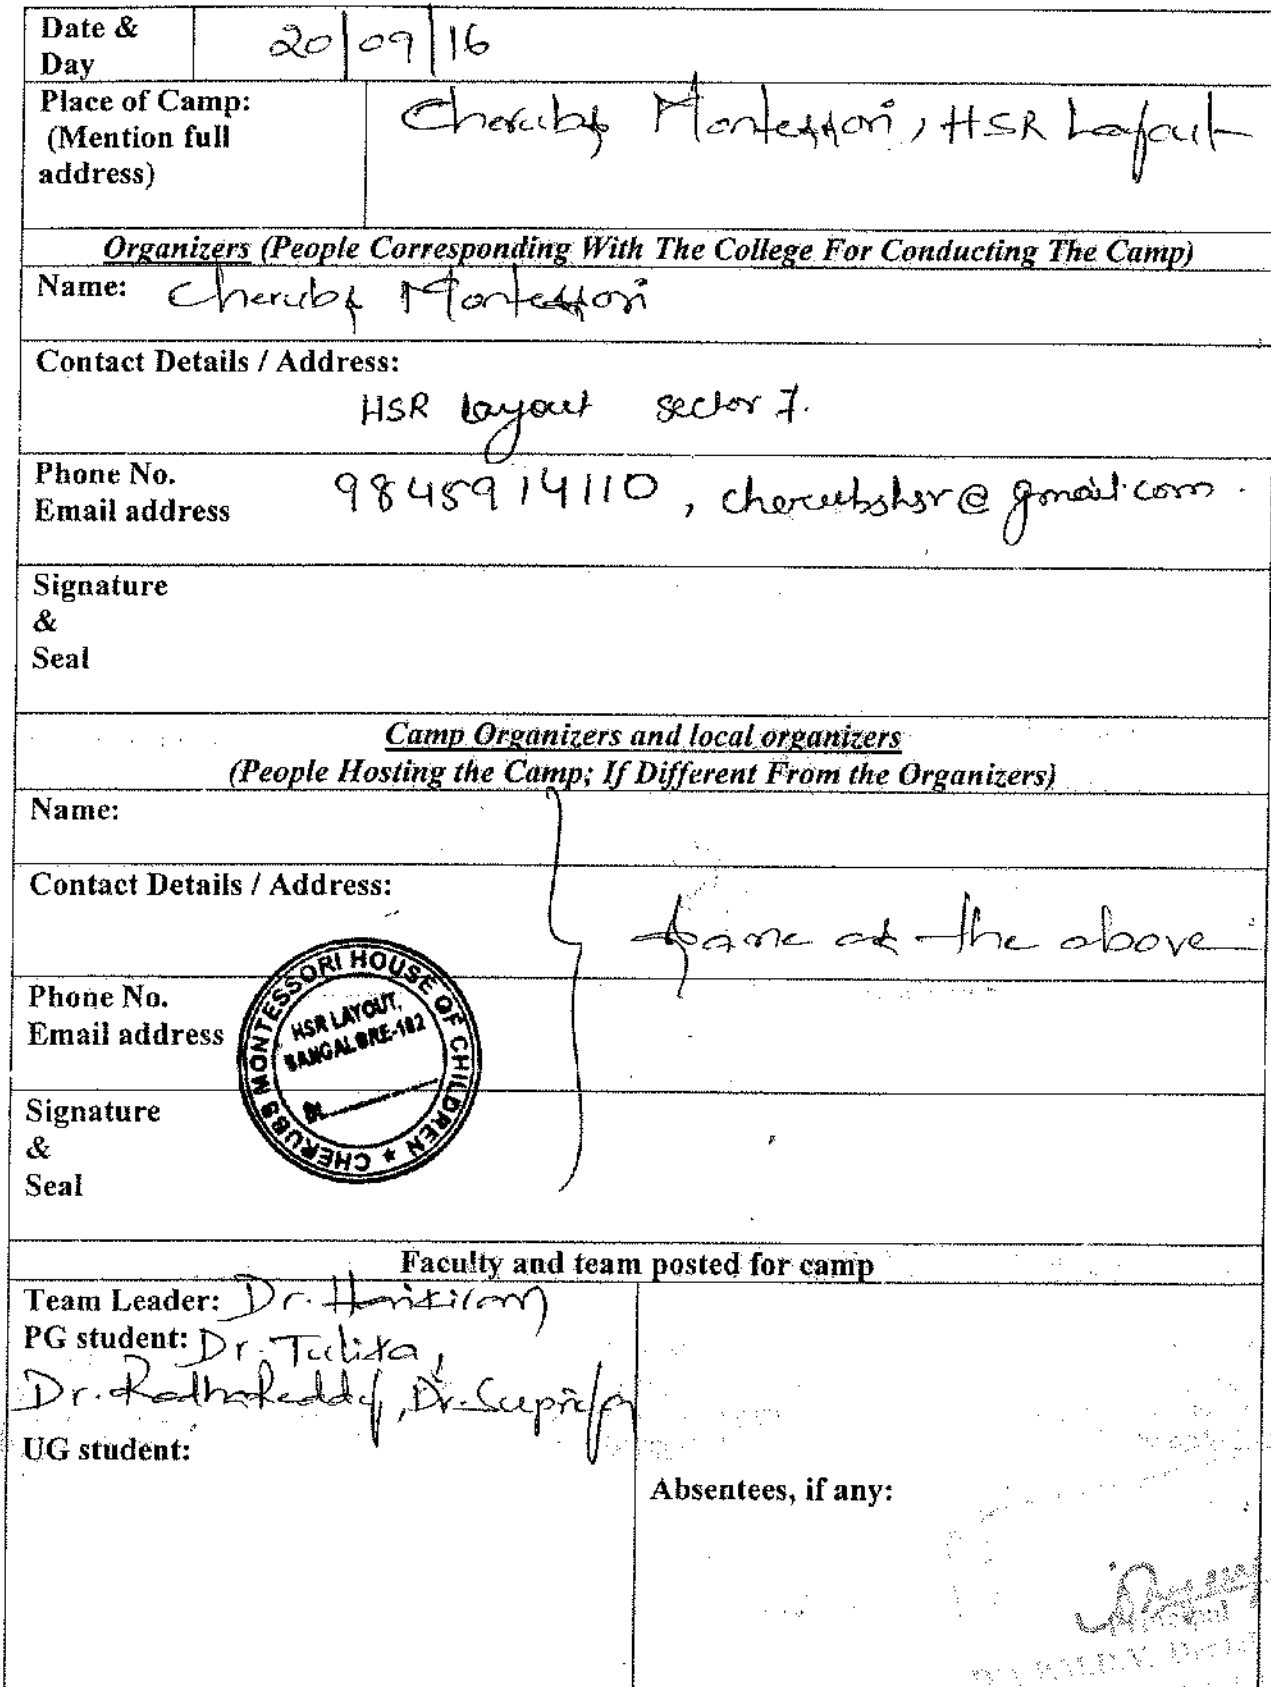 Date & 20/09/16
Day
Place of Camp: Cherubs Montessori, HSR Layout
(Mention full
address)
Organizers (People Corresponding With The College For Conducting The Camp)
Name: Cherubs Montessori
Contact Details / Address:
HSR Layout sector 7.
Phone No. 9845914110, cherubshsr@gmail.com.
Email address
Signature
&
Seal
Camp Organizers and local organizers
(People Hosting the Camp; If Different From the Organizers)
Name:
Contact Details / Address:
Same as the above
Phone No.
Email address
CHERUBS MONTESSORI HOUSE OF CHILDREN ★
HSR LAYOUT,
BANGALORE-102
Signature
&
Seal
Faculty and team posted for camp
Team Leader: Dr. Harikiran
PG student: Dr. Tulika,
Dr. Radha Reddy, Dr. Supriya
UG student:
Absentees, if any: